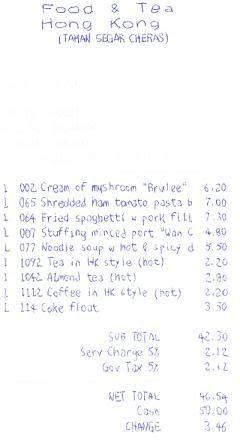 Food & Tea
Hong Kong
(TAMAN SEGAR CHERAS)
1 002 Cream of myshroom "Brulee" 6.20
1 065 Shredded ham tomato pasta b 7.00
1 064 Fried spaghetti w pork fill 7.30
1 007 Stuffing minced port "Wan C 4.80
1 077 Noodle soup w hot & spicy d 5.50
1 1092 Tea in HK style (hot) 2.20
1 1042 Almond tea (hot) 2.80
1 1112 Coffee in HK style (hot) 2.20
1 114 Coke float 3.30
SUB TOTAL 42.30
Serv Charge 5% 2.12
Gov Tax 5% 2.12
NET TOTAL 46.54
Cash 50.00
CHANGE 3.46